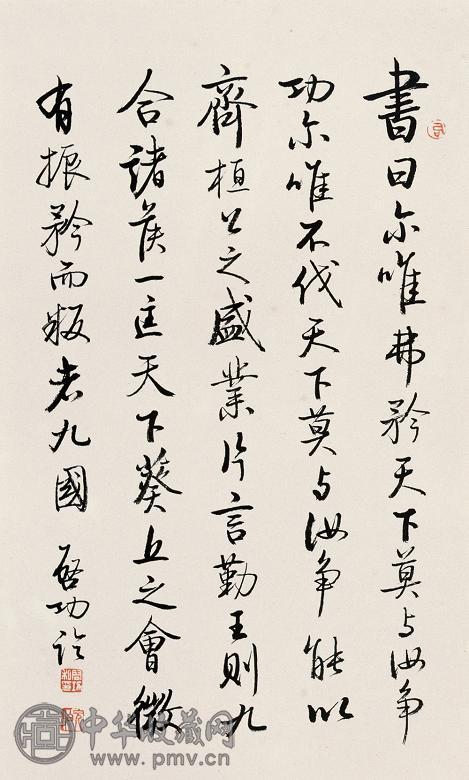 書曰尔唯弗矜天下莫与汝争
功尔唯不伐天下莫与汝争能以
齊桓公之盛業片言勤王則九
合諸侯一匡天下葵丘之會微
有振矜而叛者九國
啓功臨
中华收藏网
www.pmv.cn